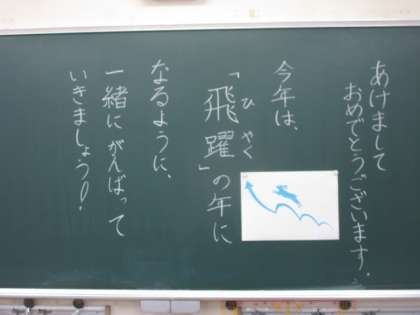 あけまして
おめでとうございます。
今年は、
「飛躍」の年に
ひやく
なるように、
一緒にがんばって
いきましょう!